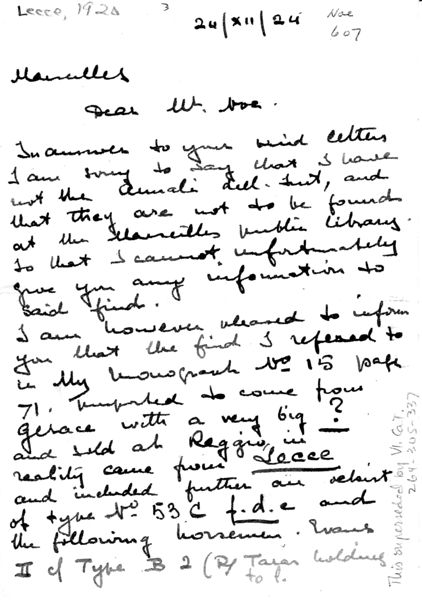 Lecce, 192
3
24/XII/24
Noe
607
Marseilles
Dear Mr. Noe.
In answer to your kind letters
I am sorry to say that I have
not the Annali dell. Inst, and
that they are not to be found
at the Marseilles public library.
So that I cannot, unfortunately
give you any information to
said find.
I am however pleased to inform
you that the find I refered to
in my monograph No 15 page
71. purported to come from
Gerace with a very big ?
and sold at Reggio, in
reality came from Lecce
and included further an obist
of type No 53 C f.d.c and
the following horsemen. Evans
II c/ Type B 2 (R/ Taras holding
to l.
This superseded by VI. G.T.
264-305-337